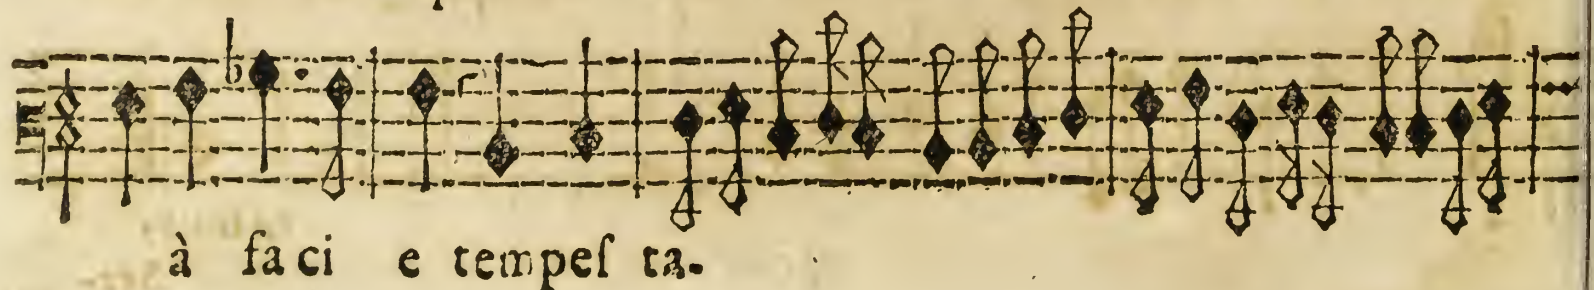 à faci e tempeſ ta.